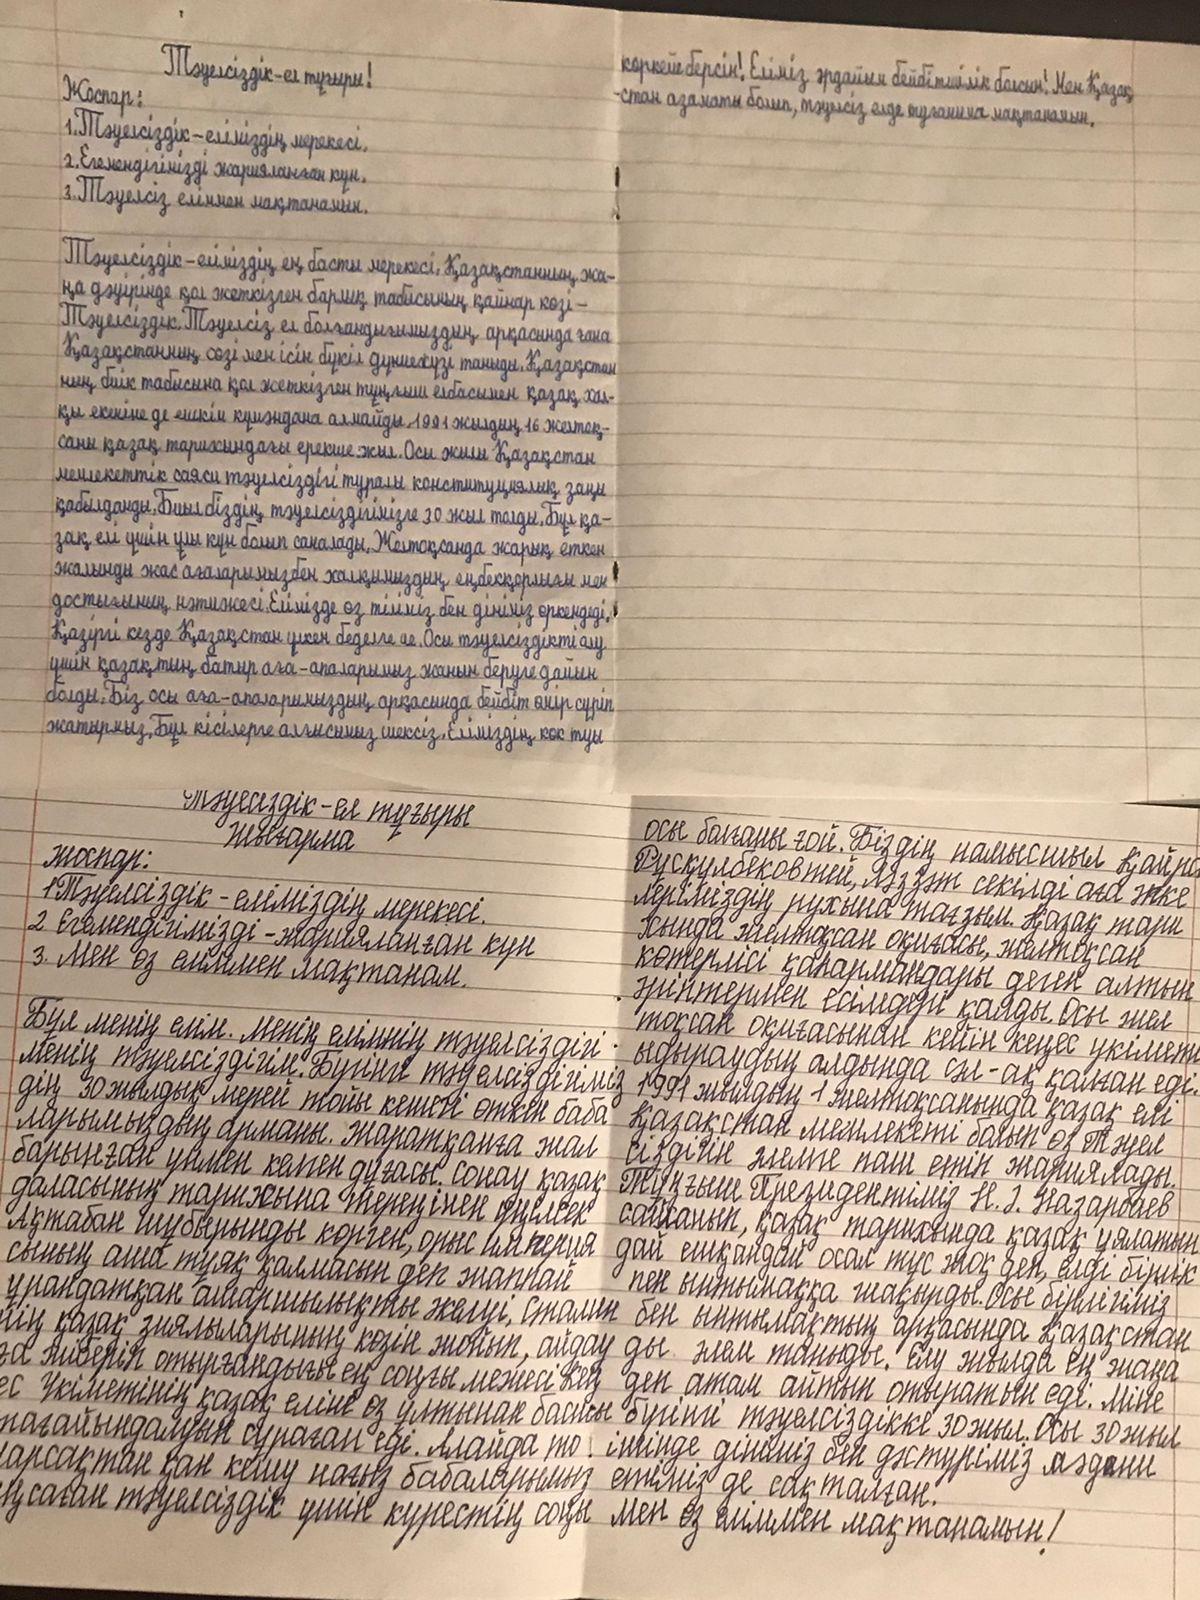 Тәуелсіздік-ел тұғыры!
Жоспар:
1.Тәуелсіздік-еліміздің мерекесі.
2.Егемендігімізді жарияланған күн.
3.Тәуелсіз еліммен мақтанамын.
Тәуелсіздік-еліміздің ең басты мерекесі. Қазақстанның жа-
ңа дәуірінде қол жеткізген барлық табысының қайнар көзі-
Тәуелсіздік. Тәуелсіз ел болғандығымыздың арқасында ғана
Қазақстанның сөзі мен ісін бүкіл дүниежүзі таныды. Қазақстан
ның биік табысына қол жеткізген тұңғыш елбасымен қазақ хал-
қы екеніне де ешкім күмәндана алмайды. 1991 жылдың 16 желтоқ-
саны қазақ тарихындағы ерекше жыл. Осы жылы Қазақстан
мемлекеттік саяси тәуелсіздігі туралы конституциялық заңы
қабылданды. Биыл біздің тәуелсіздігімізге 30 жыл толды. Бұл қа-
зақ елі үшін ұлы күн болып саналады. Желтоқсанда жарық еткен
жалынды жас ағаларымызбен халқымыздың еңбекқорлығы мен
достығының нәтижесі. Елімізде өз тіліміз бен дініміз өркендеді.
Қазіргі кезде Қазақстан үлкен беделге ие. Осы тәуелсіздікті алу
үшін қазақтың батыр аға-апаларымыз жанын беруге дайын
болды. Біз осы аға-апаларымыздың арқасында бейбіт өмір сүріп
жатырмыз. Бұл кісілерге алғысымыз шексіз. Еліміздің көк туы
көркейе берсін! Еліміз әрдайым бейбітшілік болсын! Мен Қазақ
-стан азаматы болып, тәуелсіз елде туғаныма мақтанамын.
Тәуесіздік-ел тұғыры
Шығарма
жоспар:
1 Тәуелсіздік-еліміздің мерекесі.
2 Егемендігімізді-жарияланған күн
3. Мен өз еліммен мақтанам.
Бұл менің елім. менің елімнің тәуелсіздігі
менің тәуелсіздігім. Бүгінгі тәуелсіздігіміз
дің 30 жылдық мерей тойы кешегі өткен баба
ларымыздың арманы. жаратқанға жал
барынған үнмен келген дұғасы. сонау қазақ
даласының тарихына тереңінен үңілсек
Ақтабан шұбырынды көрген, орыс империя
сының аша тұяқ қалмасын деп жаппай
ұрандатқан ашаршылықты желуі, Сталин
нің қазақ зиялыларының көзін жойып, айдау
ға жіберіп отырғандығы ең соңғы межесі Кең
ес Үкіметінің қазақ еліне өз ұлтынан басшы
тағайындалуын сұраған еді. Алайда то
нарсақтан қан кешу нағыз бабаларымыз
аңсаған тәуелсіздік үшін күрестің соңы
осы болғаны ғой. Біздің намысшыл Қайрат
Рысқұлбековтей, Ләззат секілді аға әпке
леріміздің рухына тағзым. Қазақ тари
хында желтоқсан оқиғасы, желтоқсан
көтерлісі қаһармандары деген алтын
әріптермен есімдері қалды. Осы жел
тоқсан оқиғасынан кейін кеңес үкіметі
ыдыраудың алдында сәл-ақ қалған еді.
1991 жылдың 1 желтоқсанында қазақ елі
Қазақстан мемлекеті болып өз тәуел
сіздігін әлемге паш етіп жариялады.
Тұңғыш Президентіміз Н. Ә. Назарбаев
сайланып, қазақ тарихында қазақ ұялатын
дай ешқандай осал тұс жоқ деп, елді бірлік
пен ынтымаққа шақырды. Осы бірлігіміз
бен ынтымақтың арқасында Қазақстан
ды әлем таныды. Елу жылда ең жаңа
ден атам айтып отыратын еді. Міне
бүгінгі тәуелсіздікке 30 жыл. Осы 30 жыл
ішінде дініміз бен дәстүріміз мәдени
етіміз де сақталған.
Мен өз еліммен мақтанамын!